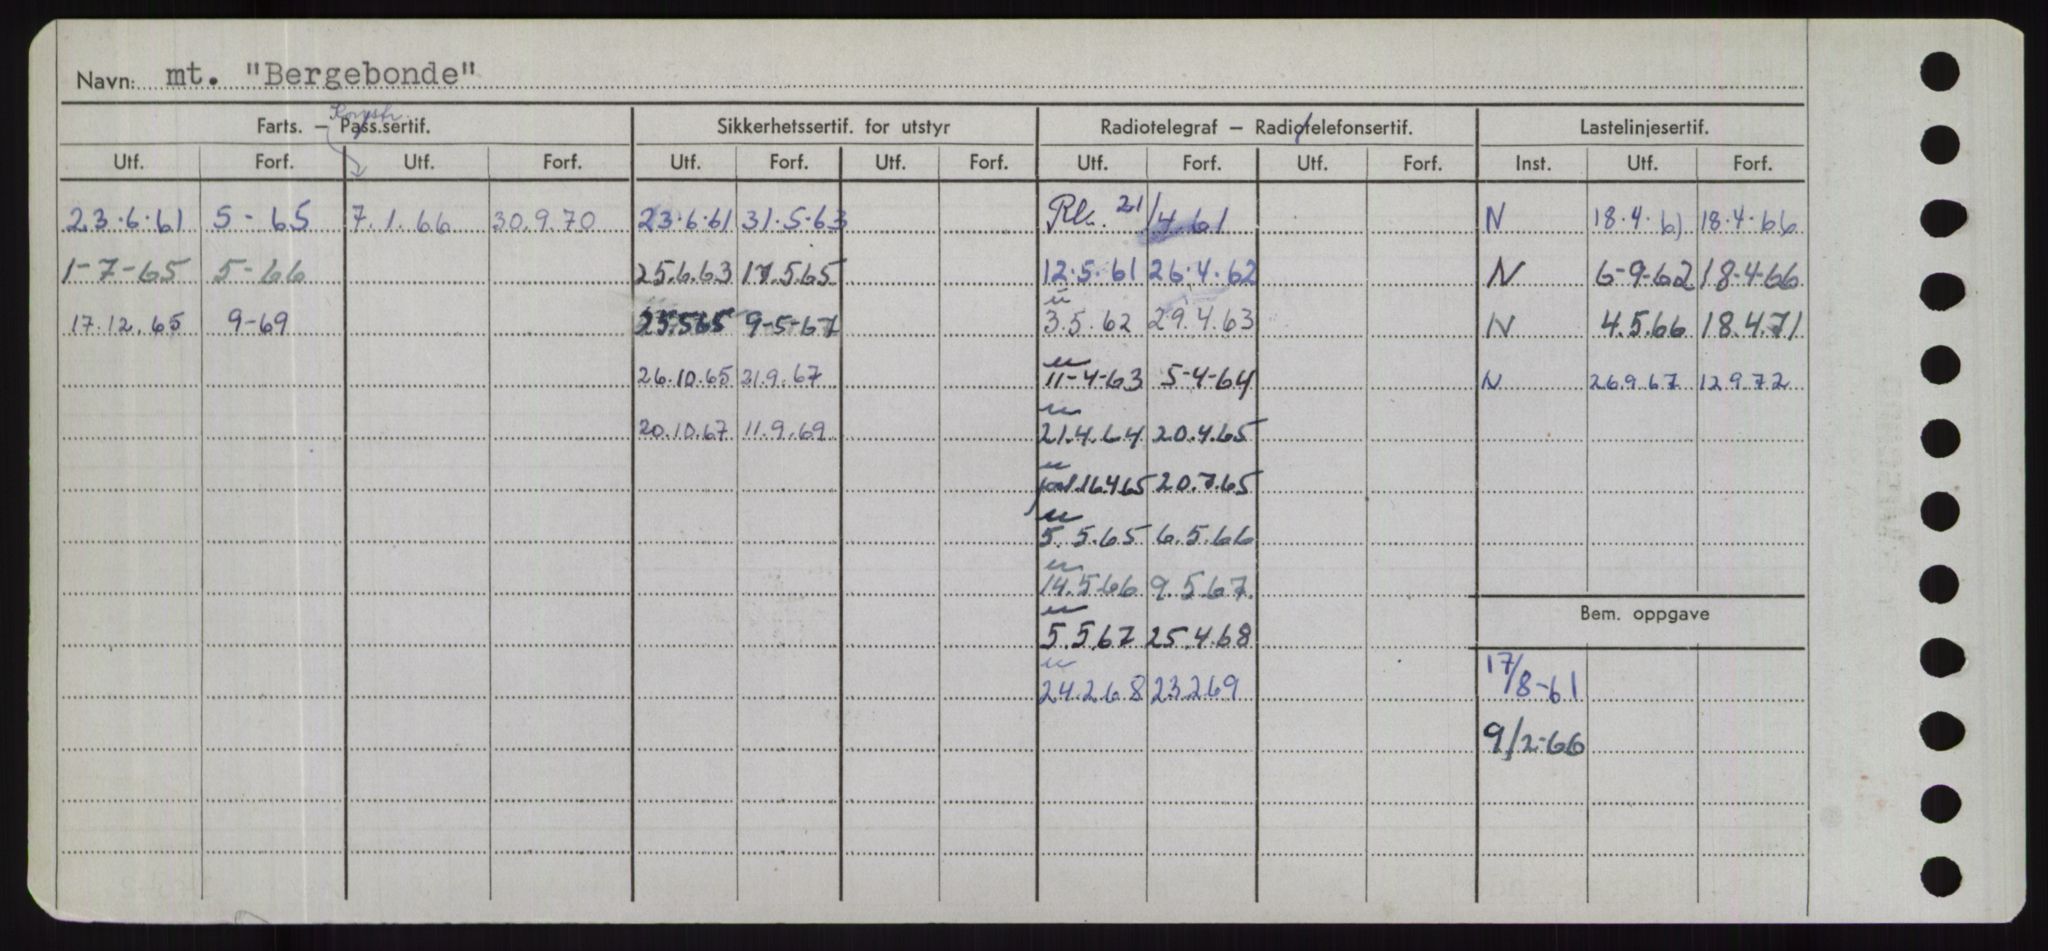 Navn: mt. "Bergebonde"
Konstr.
Farts. — Pass.sertif. Sikkerhetssertif. for utstyr Radiotelegraf — Radiotelefonsertif. Lastelinjesertif.
Utf. Forf. Utf. Forf. Utf. Forf. Utf. Forf. Utf. Forf. Utf. Forf. Inst. Utf. Forf.
23.6.61 5-65 7.1.66 30.9.70 23.6.61 31.5.63 21/4.61 N 18.4.61 18.4.66
1-7-65 5-66 25.6.63 17.5.65 12.5.61 26.4.62 N 6-9-62 18-4-66
17.12.65 9-69 25.5.65 9-5-67 3.5.62 29.4.63 N 4.5.66 18.4.71
26.10.65 21.9.67 11-4-63 5-4-64 N 26.9.67 12.9.72
20.10.67 11.9.69 21.4.64 20.4.65
16.4.65 20.7.65
5.5.65 6.5.66
14.5.66 9.5.67.
Bem. oppgave
5.5.67 25.4.68
24.2.68 23.2.69 17/8-61
9/2-66